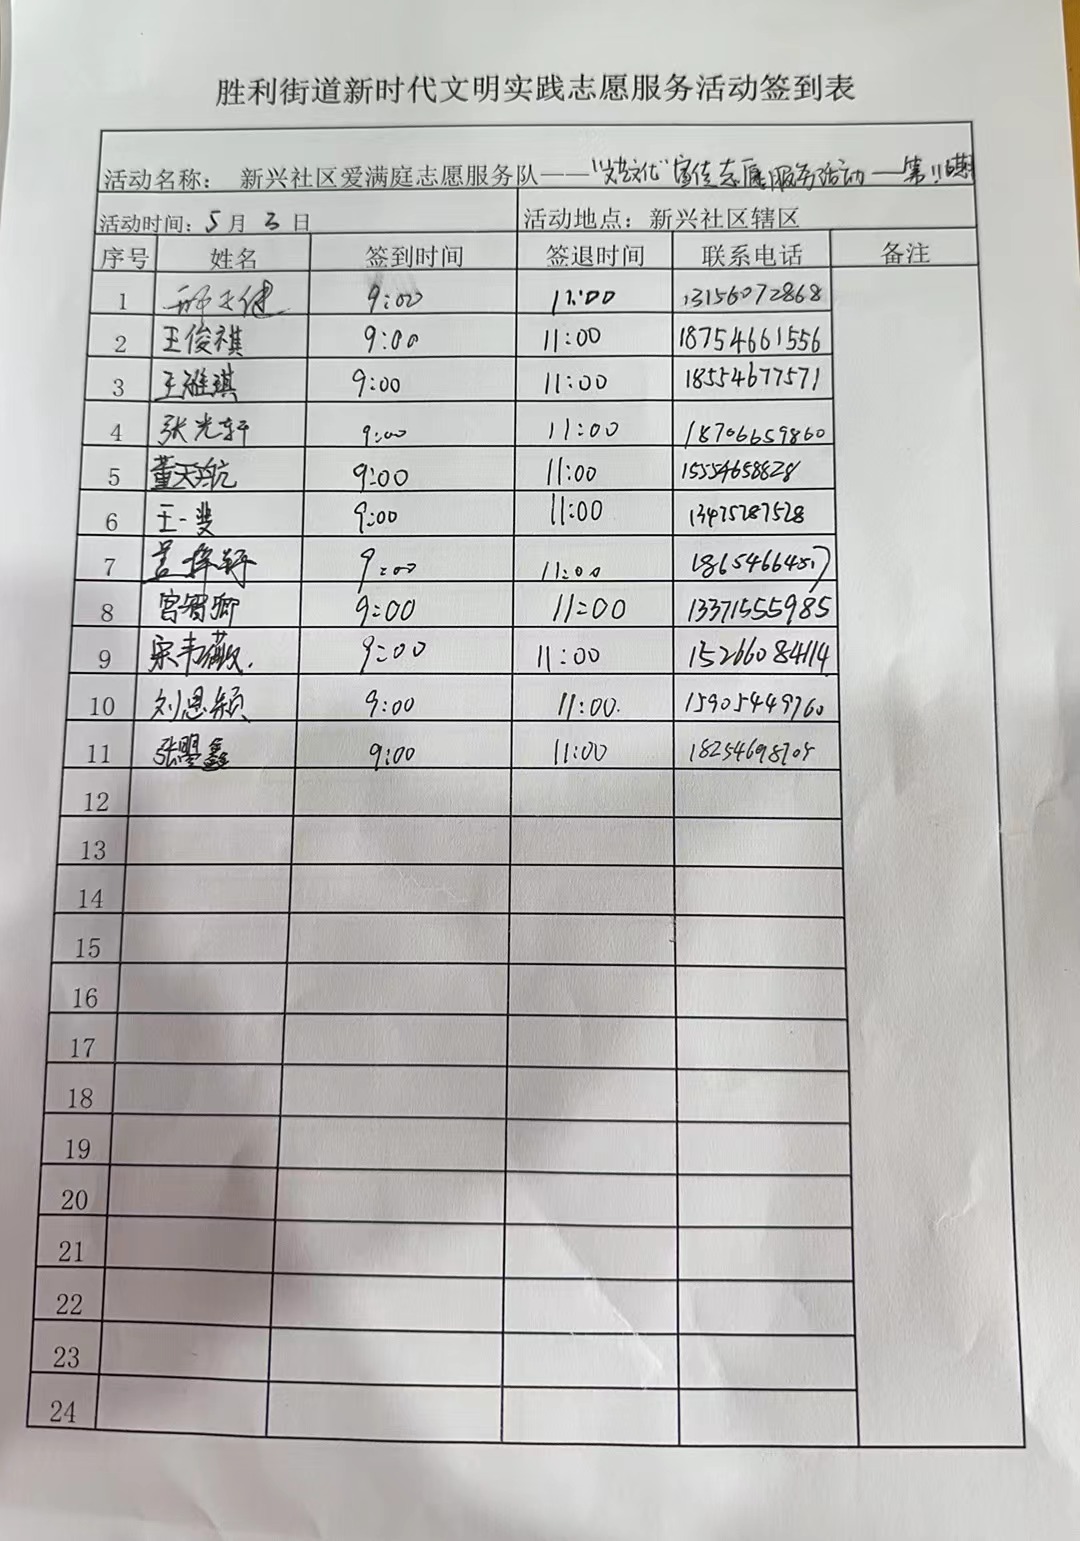 胜利街道新时代文明实践志愿服务活动签到表
活动名称： 新兴社区爱满庭志愿服务队——“文化”宣传志愿服务活动—第11期
活动时间：5月3日 活动地点：新兴社区辖区
序号 姓名 签到时间 签退时间 联系电话 备注
1 9:00 11:00 13156072868
2 王俊祺 9:00 11:00 18754661556
3 王雅琪 9:00 11:00 18554677571
4 张光轩 9:00 11:00 18706659860
5 董天航 9:00 11:00 15554658828
6 王一斐 9:00 11:00 13475287528
7 9:00 11:00 18654664517
8 宫智卿 9:00 11:00 13371555985
9 宋韦薇 9:00 11:00 15266084114
10 刘恩颖 9:00 11:00 15905449760
11 张盟鑫 9:00 11:00
12
13
14
15
16
17
18
19
20
21
22
23
24